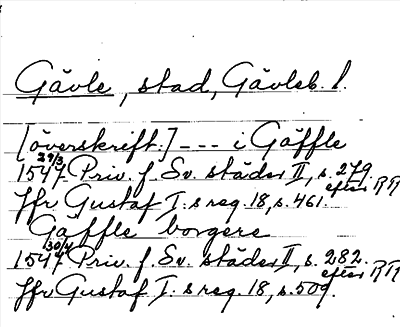 Gävle, stad, Gävleb. l.
[överskrift:] --- i Gäffle
1547 29/3 Priv. f. Sv. städer II, s. 279. efter RR
Jfr Gustaf I:s reg. 18, s. 461.
Gäffle borgere
1547 30/4 Priv. f. Sv. städer II, s. 282. efter RR
Jfr Gustaf I:s reg. 18, s. 509.